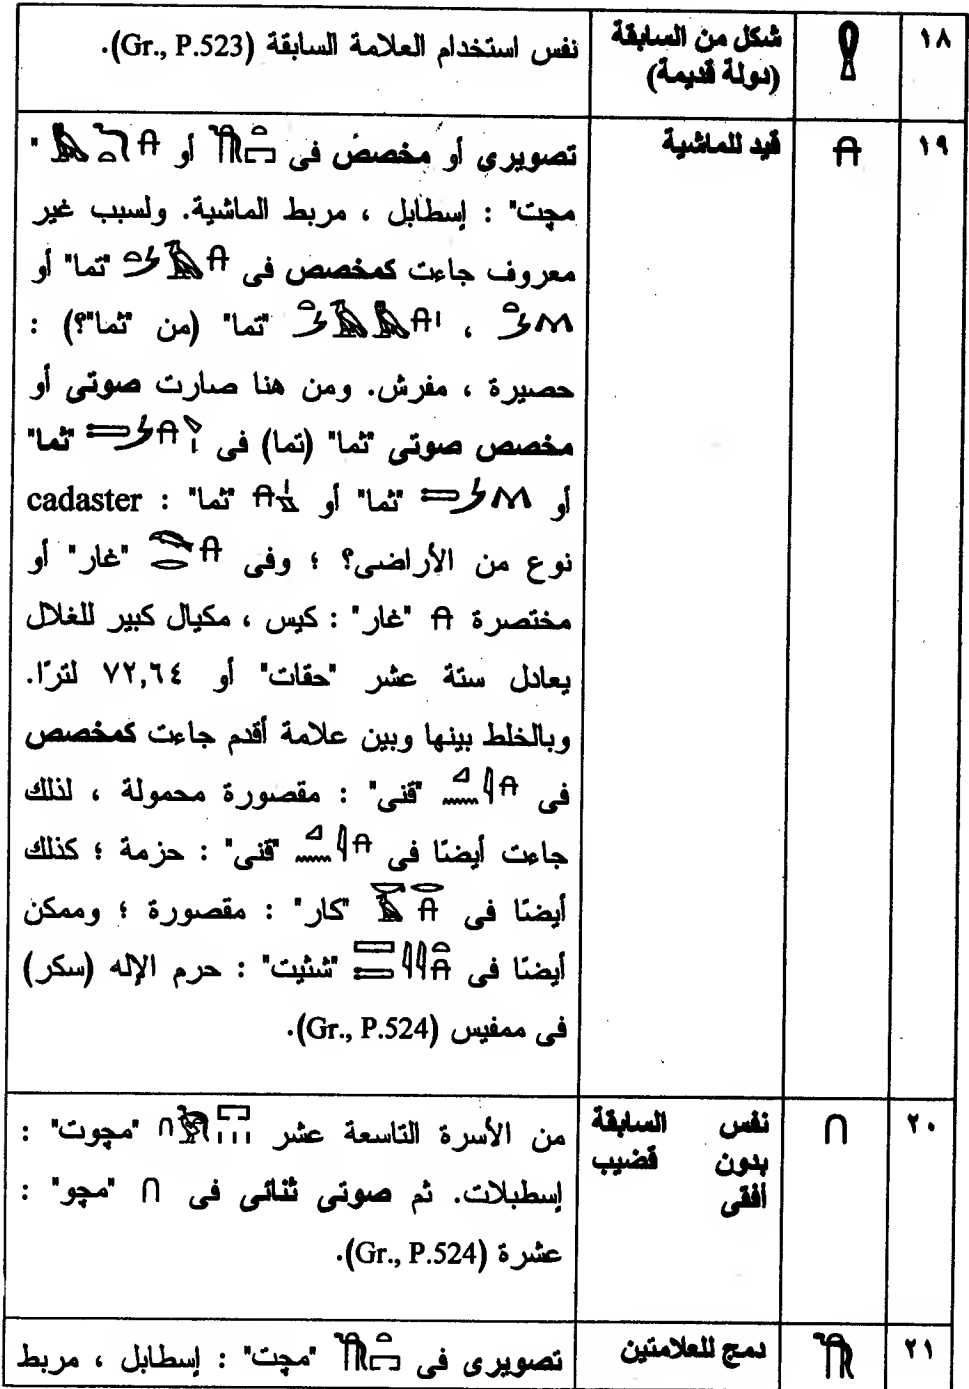 ١٨ شكل من السابقة نفس استخدام العلامة السابقة (Gr., P.523).
(دولة قديمة)
١٩ 𓎅 قيد للماشية تصويرى أو مخصص فى أو "
مچت" : إسطابل ، مربط الماشية. ولسبب غير
معروف جاءت كمخصص فى "تما" أو
، "تما" (من "ثما"؟) :
حصيرة ، مفرش. ومن هنا صارت صوتى أو
مخصص صوتى "ثما" (تما) فى "ثما"
أو "ثما" أو "ثما" : cadaster
نوع من الأراضى؟ ؛ وفى "غار" أو
مختصرة 𓎅 "غار" : كيس ، مكيال كبير للغلال
يعادل ستة عشر "حقات" أو ٧٢,٦٤ لترًا.
وبالخلط بينها وبين علامة أقدم جاءت كمخصص
فى "قنى" : مقصورة محمولة ، لذلك
جاءت أيضًا فى "قنى" : حزمة ؛ كذلك
أيضًا فى "كار" : مقصورة ؛ وممكن
أيضًا فى "شثيت" : حرم الإله (سكر)
فى ممفيس (Gr., P.524).
٢٠ 𓎆 نفس السابقة من الأسرة التاسعة عشر "مچوت" :
بدون قضيب إسطبلات. ثم صوتى ثنائى فى 𓎆 "مچو" :
أفقى عشرة (Gr., P.524).
٢١ دمج للعلامتين تصويرى فى "مچت" : إسطابل ، مربط